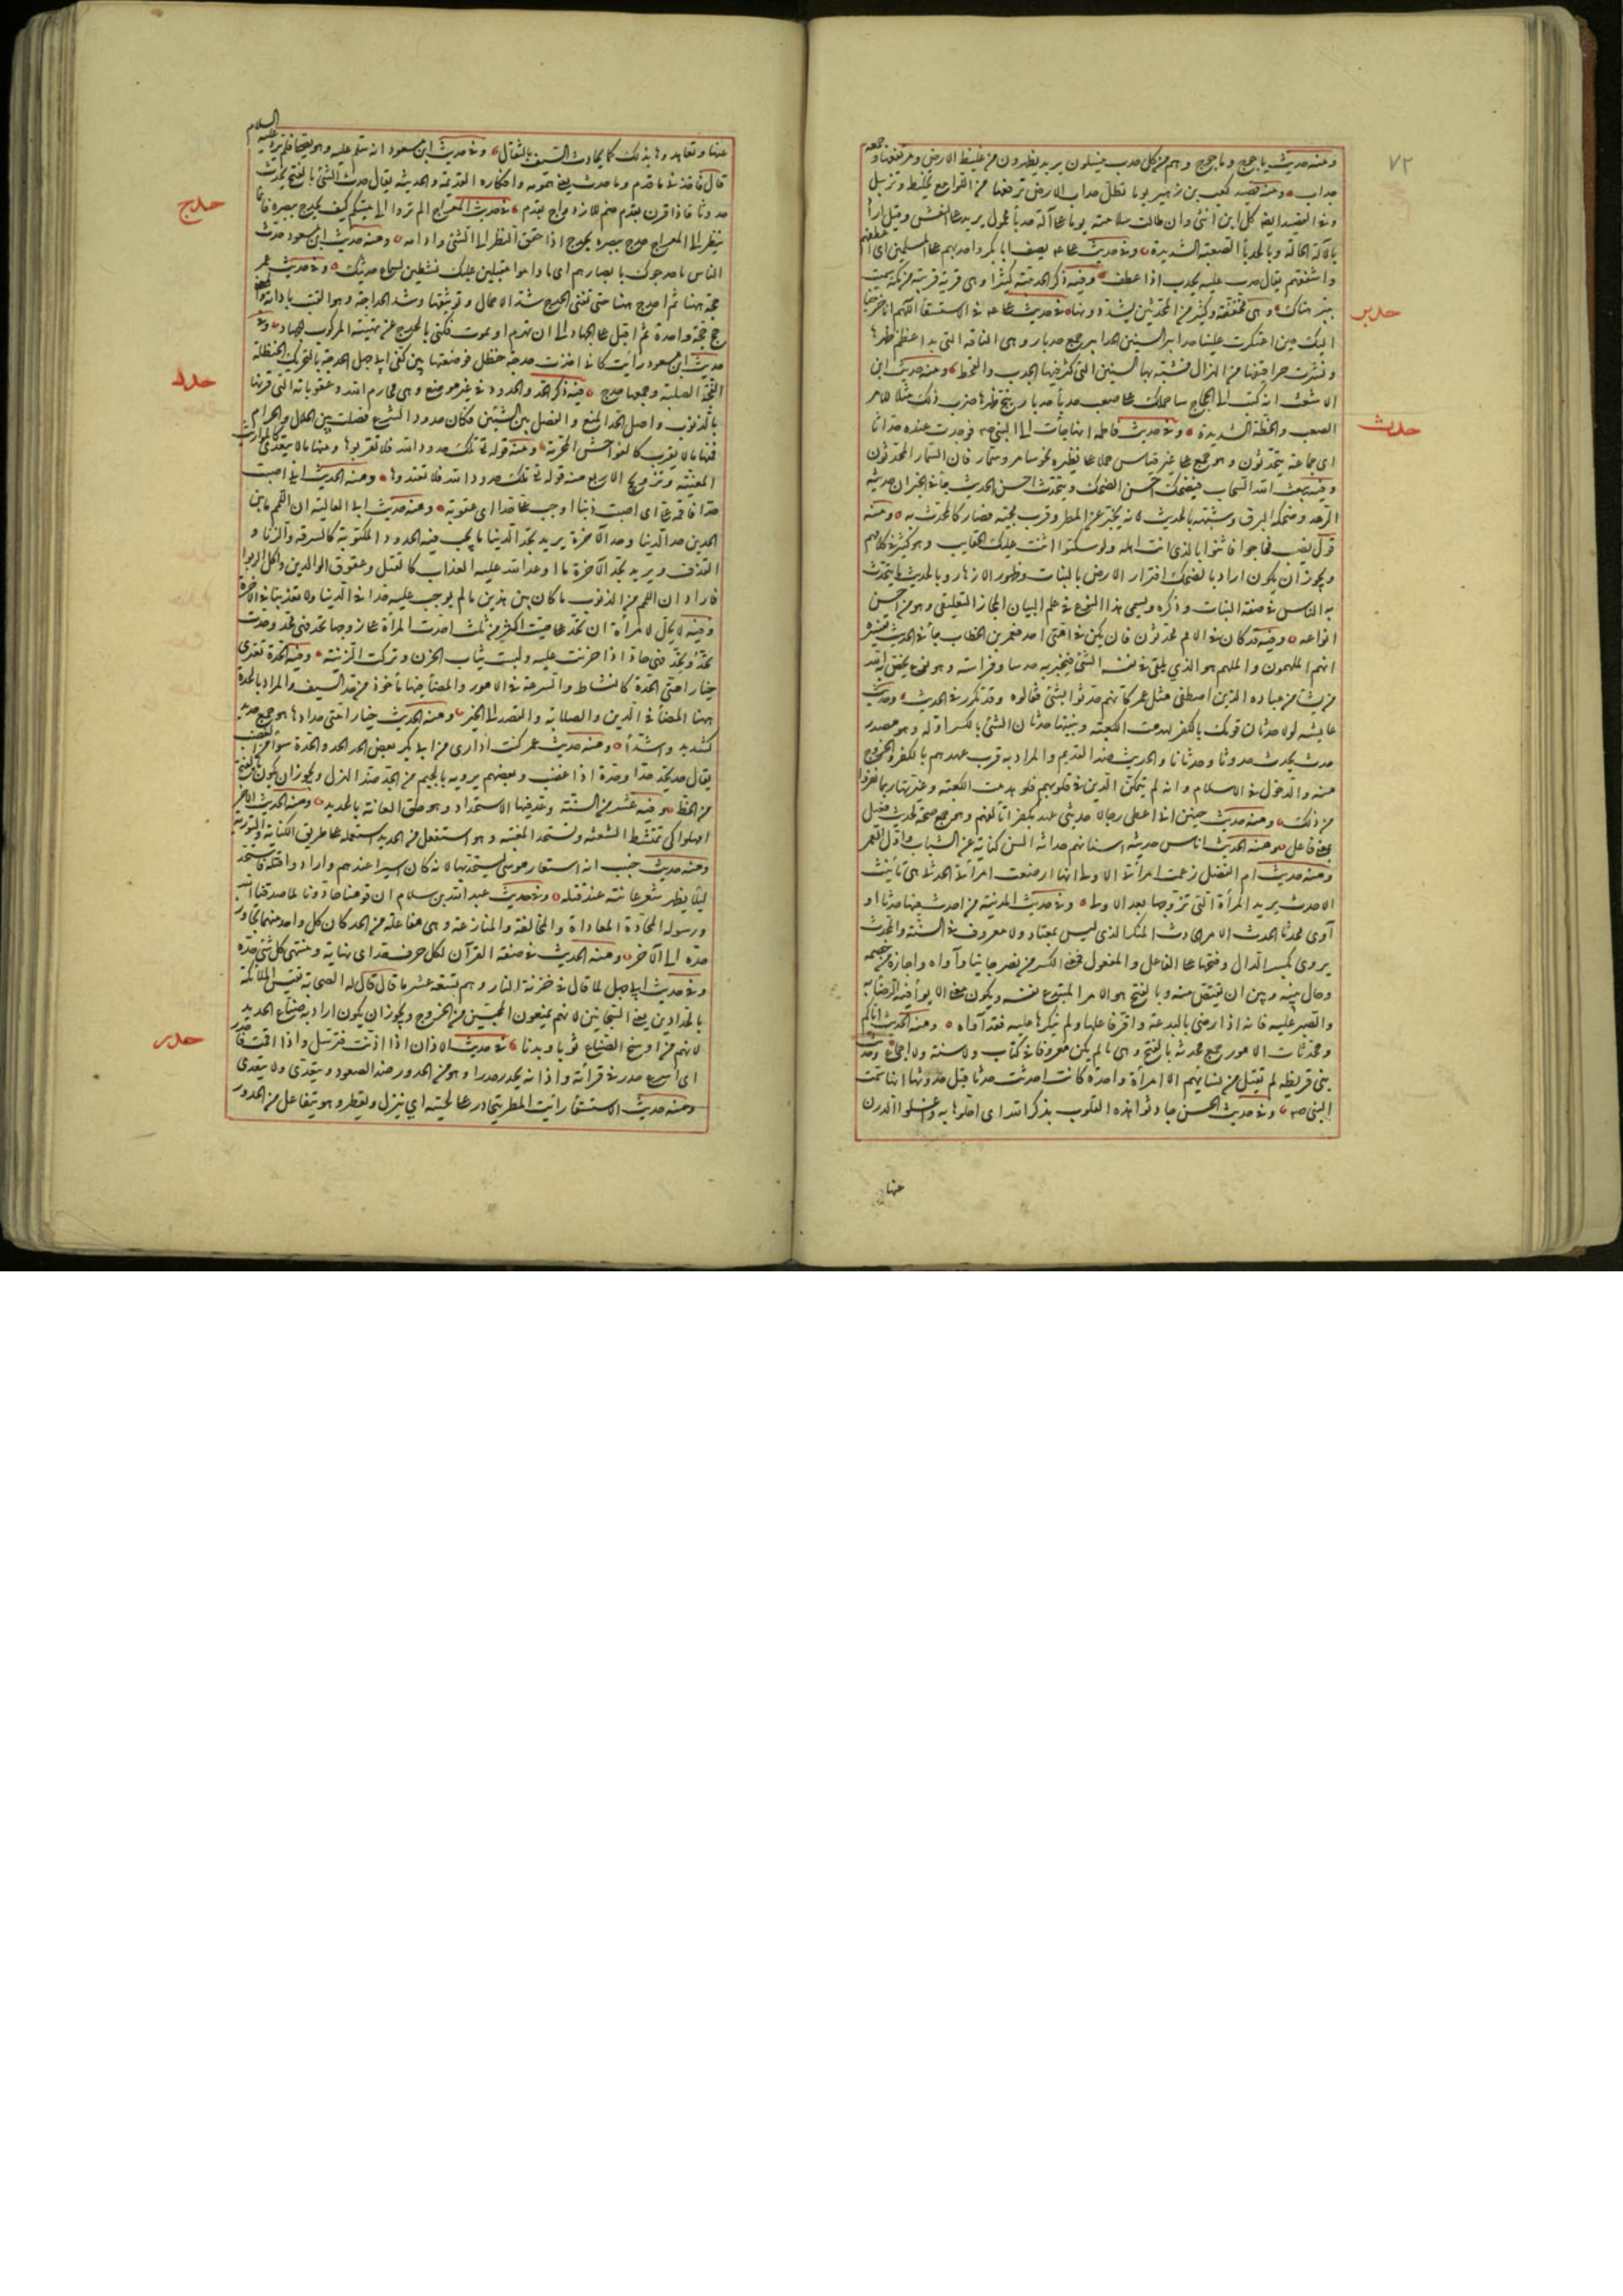 ٧٢
ومنه حديث ياجوج وماجوج وهم من كل حدب ينسلون يريد يظهرون من غليظ الارض ومرتفعها وجمعه
حداب ومنه قصيد كعب بن زهير يوما تظل حداب الارض ترفعها من اللوامع تخليط وتزييل
وفي القصيد ايضا كل ابن انثى وان طالت سلامته يوما على آلة حدبا محمول يريد على النعش وقيل اراد
بالآلة الحالة وبالحدبا الصعبة الشديدة وفي حديث علي يصف ابا بكر واحدبهم على المسلمين اي اعطفهم
واشفقهم يقال حدب عليه يحدب اذا عطف وفيه ذكر الحديبية كثيرا وهي قرية قريبة من مكة سميت
ببئر هناك وهي مخففة وكثير من المحدثين يشددونها في حديث علي في الاستسقا اللهم انا خرجنا
حدبر
اليك حين اعتكرت علينا حدابير السنين الحدابير جمع حدبار وهي الناقة التي بدا عظم ظهرها
ونشزت حراقيفها من الهزال فشبه بها السنين التي كثر فيها الجدب والقحط ومنه حديث ابن
الاشعث انه كتب الى الحجاج ساحملك على صعب حدبا حدبار ينج ظهرها ضرب ذلك مثلا للامر
الصعب والخطة الشديدة وفي حديث فاطمة انها جأت الى النبي صم فوجدت عنده حداثا
حدث
اي جماعة يتحدثون وهو جمع على غير قياس حملا على نظيره نحو سامر وسمار فان السمار المحدثون
وفيه يبعث الله السحاب فيضحك احسن الضحك ويتحدث احسن الحديث جأ في الخبر ان حديثه
الرعد وضحكه البرق وشبهه بالحديث لانه يخبر عن المطر وقرب مجيئه فصار كالمحدث به ومنه
قول نصيب فعاجوا فاثنوا بالذي انت اهله ولو سكتوا اثنت عليك الحقايب وهو كثير في كلامهم
ويجوز ان يكون اراد بالضحك افترار الارض بالنبات وظهور الازهار وبالحديث ما يتحدث
به الناس في صفة النبات وذكره ويسمى هذا النوع في علم البيان المجاز التعليقي وهو من احسن
انواعه وفيه قد كان في الامم محدثون فان يكن في امتي احد فعمر بن الخطاب جأ في الحديث تفسيره
انهم الملهمون والملهم هو الذي يلقى في نفسه الشئ فيخبر به حدسا وفراسة وهو نوع يختص به الله
من يشأ من عباده الذين اصطفى مثل عمر كأنهم حدثوا بشئ فقالوه وقد تكرر في الحديث وحديث
عايشة لولا حدثان قومك بالكفر لهدمت الكعبة وبنيتها حدثان الشئ بالكسر اوله وهو مصدر
حدث يحدث حدوثا وحدثانا والحديث ضد القديم والمراد به قرب عهدهم بالكفر والخروج
منه والدخول في الاسلام وانه لم يتمكن الدين في قلوبهم فلو هدمت الكعبة وغيرتها ربما نفروا
من ذلك ومنه حديث حنين اني اعطي رجالا حديثي عهد بكفر اتالفهم وهو جمع صحة لحديث فعيل
بمعنى فاعل ومنه الحديث اناس حديثة اسنانهم حداثة السن كناية عن الشباب واول العمر
ومنه حديث ام الفضل زعمت امرأتي الاولى انها ارضعت امرأتي الحدثى هي تأنيث
الاحدث يريد المرأة التي تزوجها بعد الاولى وفي حديث المدينة من احدث فيها حدثا او
آوى محدثا الحدث الامر الحادث المنكر الذي ليس بمعتاد ولا معروف في السنة والمحدث
يروى بكسر الدال وفتحها على الفاعل والمفعول فمعنى الكسر من نصر جانيا وآواه واجاره من خصمه
وحال بينه وبين ان يقتص منه وبالفتح هو الامر المبتدع نفسه ويكون معنى الايوأ فيه الرضا به
والصبر عليه فانه اذا رضي بالبدعة واقر فاعلها ولم ينكرها عليه فقد آواه ومنه الحديث اياكم
ومحدثات الامور جمع محدثة بالفتح وهي ما لم يكن معروفا في كتاب ولا سنة ولا اجماع وحديث
بني قريظة لم يقتل من نسائهم الا امرأة واحدة كانت احدثت حدثا قيل حدثها انها سمت
النبي صم وفي حديث الحسن حادثوا هذه القلوب بذكر الله اي اجلوها به واغسلوا الدرن
عنها
عنها وتعاهدوها بذلك كما يحادث السيف بالصقال وفي حديث ابن مسعود انه سلم عليه وهو يصلي فلم يرد عليه السلام
قال فاخذني ما قدم وما حدث يعني همومه وافكاره القديمة والحديثة يقال حدث الشئ بالفتح يحدث
حدوثا فاذا قرن بقدم ضم للازدواج بقدم في حديث المعراج الم تروا الى ميتكم كيف يحدج ببصره فانما
حدج
ينظر الى المعراج حدج ببصره يحدج اذا حقق النظر الى الشئ وادامه ومنه حديث ابن مسعود حدث
الناس ما حدجوك بابصارهم اي ما داموا مقبلين عليك نشطين لسماع حديثك وفي حديث عمر
حجة ههنا ثم احدج ههنا حتى تفنى الحدج شد الاحمال وتوثيقها وشد الحداجة وهو القتب باداته والمعنى
حج حجة واحدة ثم اقبل على الجهاد الى ان تهرم او تموت فكنى بالحدج عن تهيئة المركوب للجهاد وفي
حديث ابن مسعود رأيت كأني اخذت حدجة حنظل فوضعتها بين كتفي ابي جهل الحدجة بالتحريك الحنظلة
الفجة الصلبة وجمعها حدج فيه ذكر الحد والحدود في غير موضع وهي محارم الله وعقوباته التي قرنها
حدد
بالذنوب واصل الحد المنع والفصل بين الشيئين فكأن حدود الشرع فصلت بين الحلال والحرام
فمنها ما لا يقرب كالفواحش المحرمة ومنه قوله تع تلك حدود الله فلا تقربوها ومنها ما لا يتعدى كالمواريث
المعينة وتزويج الاربع ومنه قوله تع تلك حدود الله فلا تعتدوها ومنه الحديث اني اصبت
حدا فاقمه علي اي اصبت ذنبا اوجب علي حدا اي عقوبة ومنه حديث ابي العالية ان اللمم ما بين
الحدين حد الدنيا وحد الآخرة يريد بحد الدنيا ما يجب فيه الحدود المكتوبة كالسرقة والزنا و
القذف ويريد بحد الآخرة ما اوعد الله عليه العذاب كالقتل وعقوق الوالدين واكل الربوا
فاراد ان اللمم من الذنوب ما كان بين هذين مما لم يوجب عليه حدا في الدنيا ولا تعذيبا في الآخرة
وفيه لا يحل لامرأة ان تحد على ميت اكثر من ثلث احدت المرأة على زوجها تحد فهي محد وحدت
تحد وتحد فهي حاد اذا حزنت عليه ولبست ثياب الحزن وتركت الزينة وفيه الحدة تعتري
خيار امتي الحدة كالنشاط والسرعة في الامور والمضأ فيها مأخوذ من حد السيف والمراد بالحدة
ههنا المضأ في الدين والصلابة والقصد الى الخير ومنه الحديث خيار امتي حدادها هو جمع حديد
كشديد وشداد ومنه حديث عمر كنت اداري من ابي بكر بعض الحد الحد والحدة سوأ من الغضب
يقال حد يحد حدا وحدة اذا غضب وبعضهم يرويه بالجيم من الجد ضد الهزل ويجوز ان يكون بالفتح
من الحظ وفيه عشر من السنة وعد فيها الاستحداد وهو حلق العانة بالحديد ومنه الحديث الآخر
امهلوا كي تمتشط الشعثة وتستحد المغيبة وهو استفعل من الحديد استعمله على طريق الكناية والتورية
ومنه حديث خبيب انه استعار موسى ليستحد بها لانه كان اسيرا عندهم وارادوا قتله فاستحد
ليلا يظهر شعر عانته عند قتله وفي حديث عبد الله بن سلام ان قومنا حادونا لما صدقنا الله
ورسوله المحادة المعاداة والمخالفة والمنازعة وهي مفاعلة من الحد كان كل واحد منهما تجاوز
حده الى الآخر ومنه الحديث في صفة القرآن لكل حرف حد اي نهاية ومنتهى كل شئ حده
وفي حديث ابي جهل لما قال في خزنة النار وهم تسعة عشر ما قال قال له الصحابة تقيس الملائكة
بالحدادين يعني السجانين لانهم يمنعون المحبسين من الخروج ويجوز ان يكون اراد به صناع الحديد
لانهم من اوسخ الصناع ثوبا وبدنا في حديث الاذان اذا اذنت فترسل واذا اقمت فاحدر
حدر
اي اسرع حدر في قرأته واذانه يحدر حدرا وهو من الحدور ضد الصعود ويتعدى ولا يتعدى
ومنه حديث الاستسقا رأيت المطر يتحادر على لحيته اي ينزل ويقطر وهو يتفاعل من الحدور